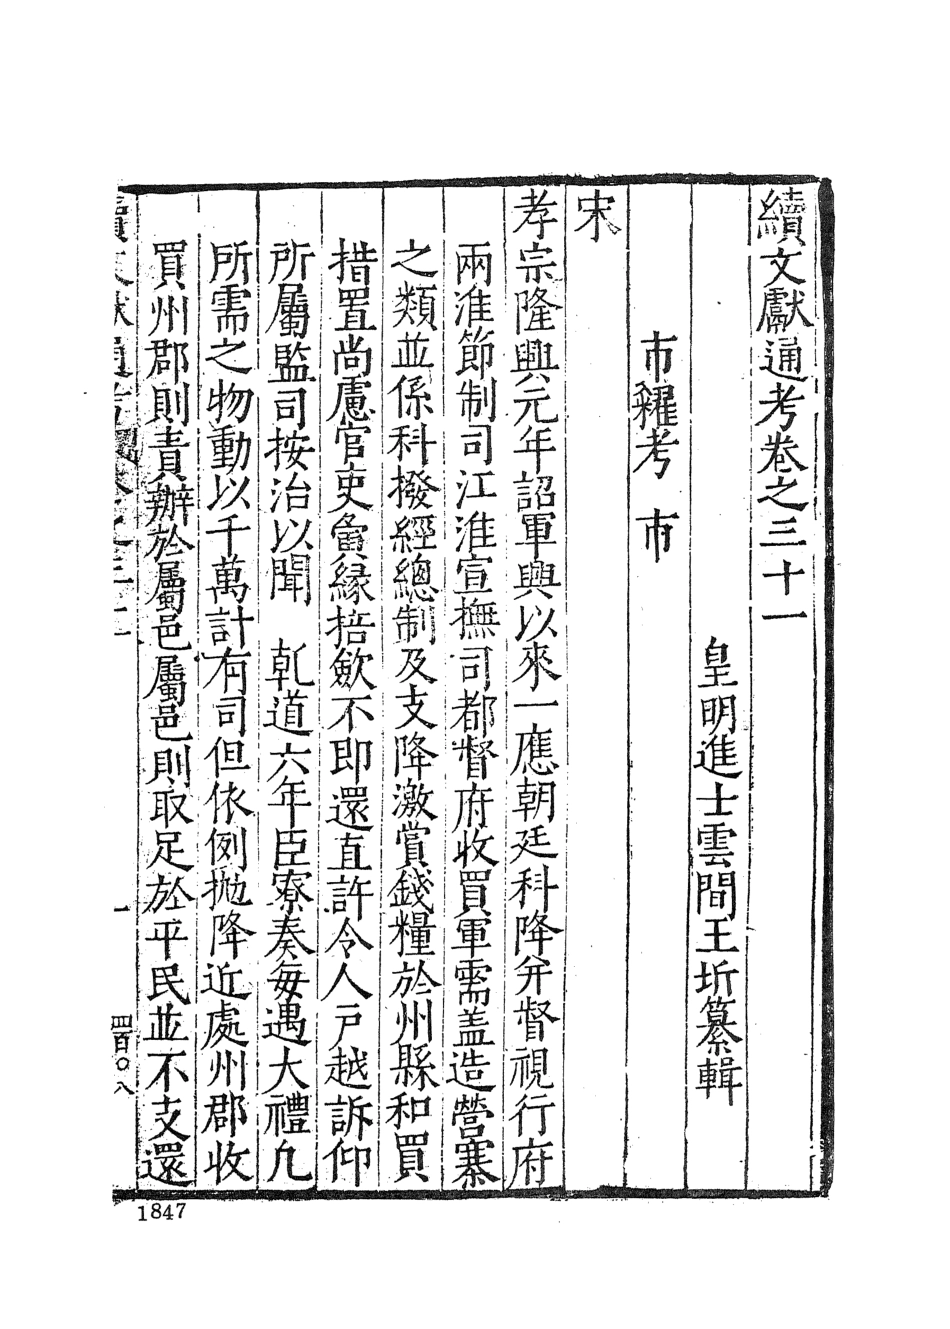 續文獻通考卷之三十一
皇明進士雲間王圻纂輯
市糴考 市
宋
孝宗隆興元年詔軍興以來一應朝廷科降并督視行府
兩淮節制司江淮宣撫司都督府收買軍需盖造營寨
之類並係科撥經總制及支降激賞錢糧於州縣和買
措置尚慮官吏夤緣掊歛不即還直許令人戶越訴仰
所屬監司按治以聞 乹道六年臣寮奏每遇大禮凡
所需之物動以千萬計有司但依例抛降近處州郡收
買州郡則責辦於屬邑屬邑則取足於平民並不支還
續文獻通考 卷之三十一 一 四百〇八
1847